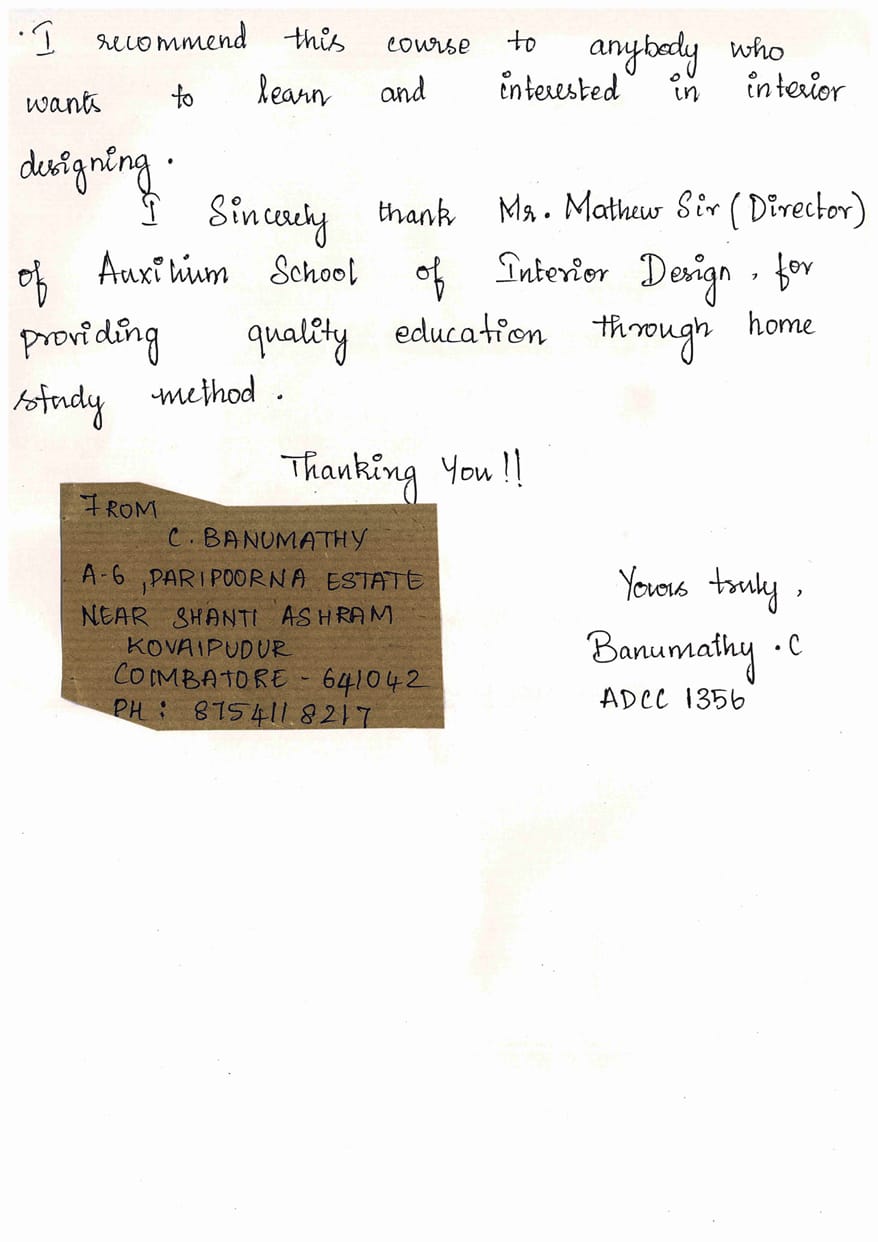 I recommend this course to anybody who
wants to learn and interested in interior
designing.
I Sincerely thank Mr. Mathew Sir (Director)
of Auxilium School of Interior Design, for
providing quality education through home
study method.
Thanking You!!
FROM
C. BANUMATHY
A-6, PARIPOORNA ESTATE
NEAR SHANTI ASHRAM
KOVAIPUDUR
COIMBATORE - 641042
PH: 8754118217
Yours truly,
Banumathy.C
ADCC 1356